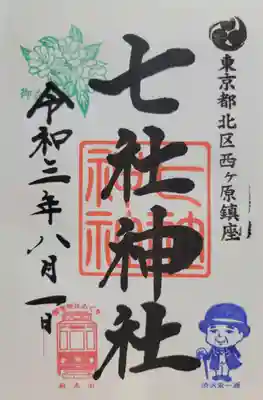 東京都北区西ヶ原鎮座
七社神社
七社神社
令和三年八月一日
渋沢栄一翁